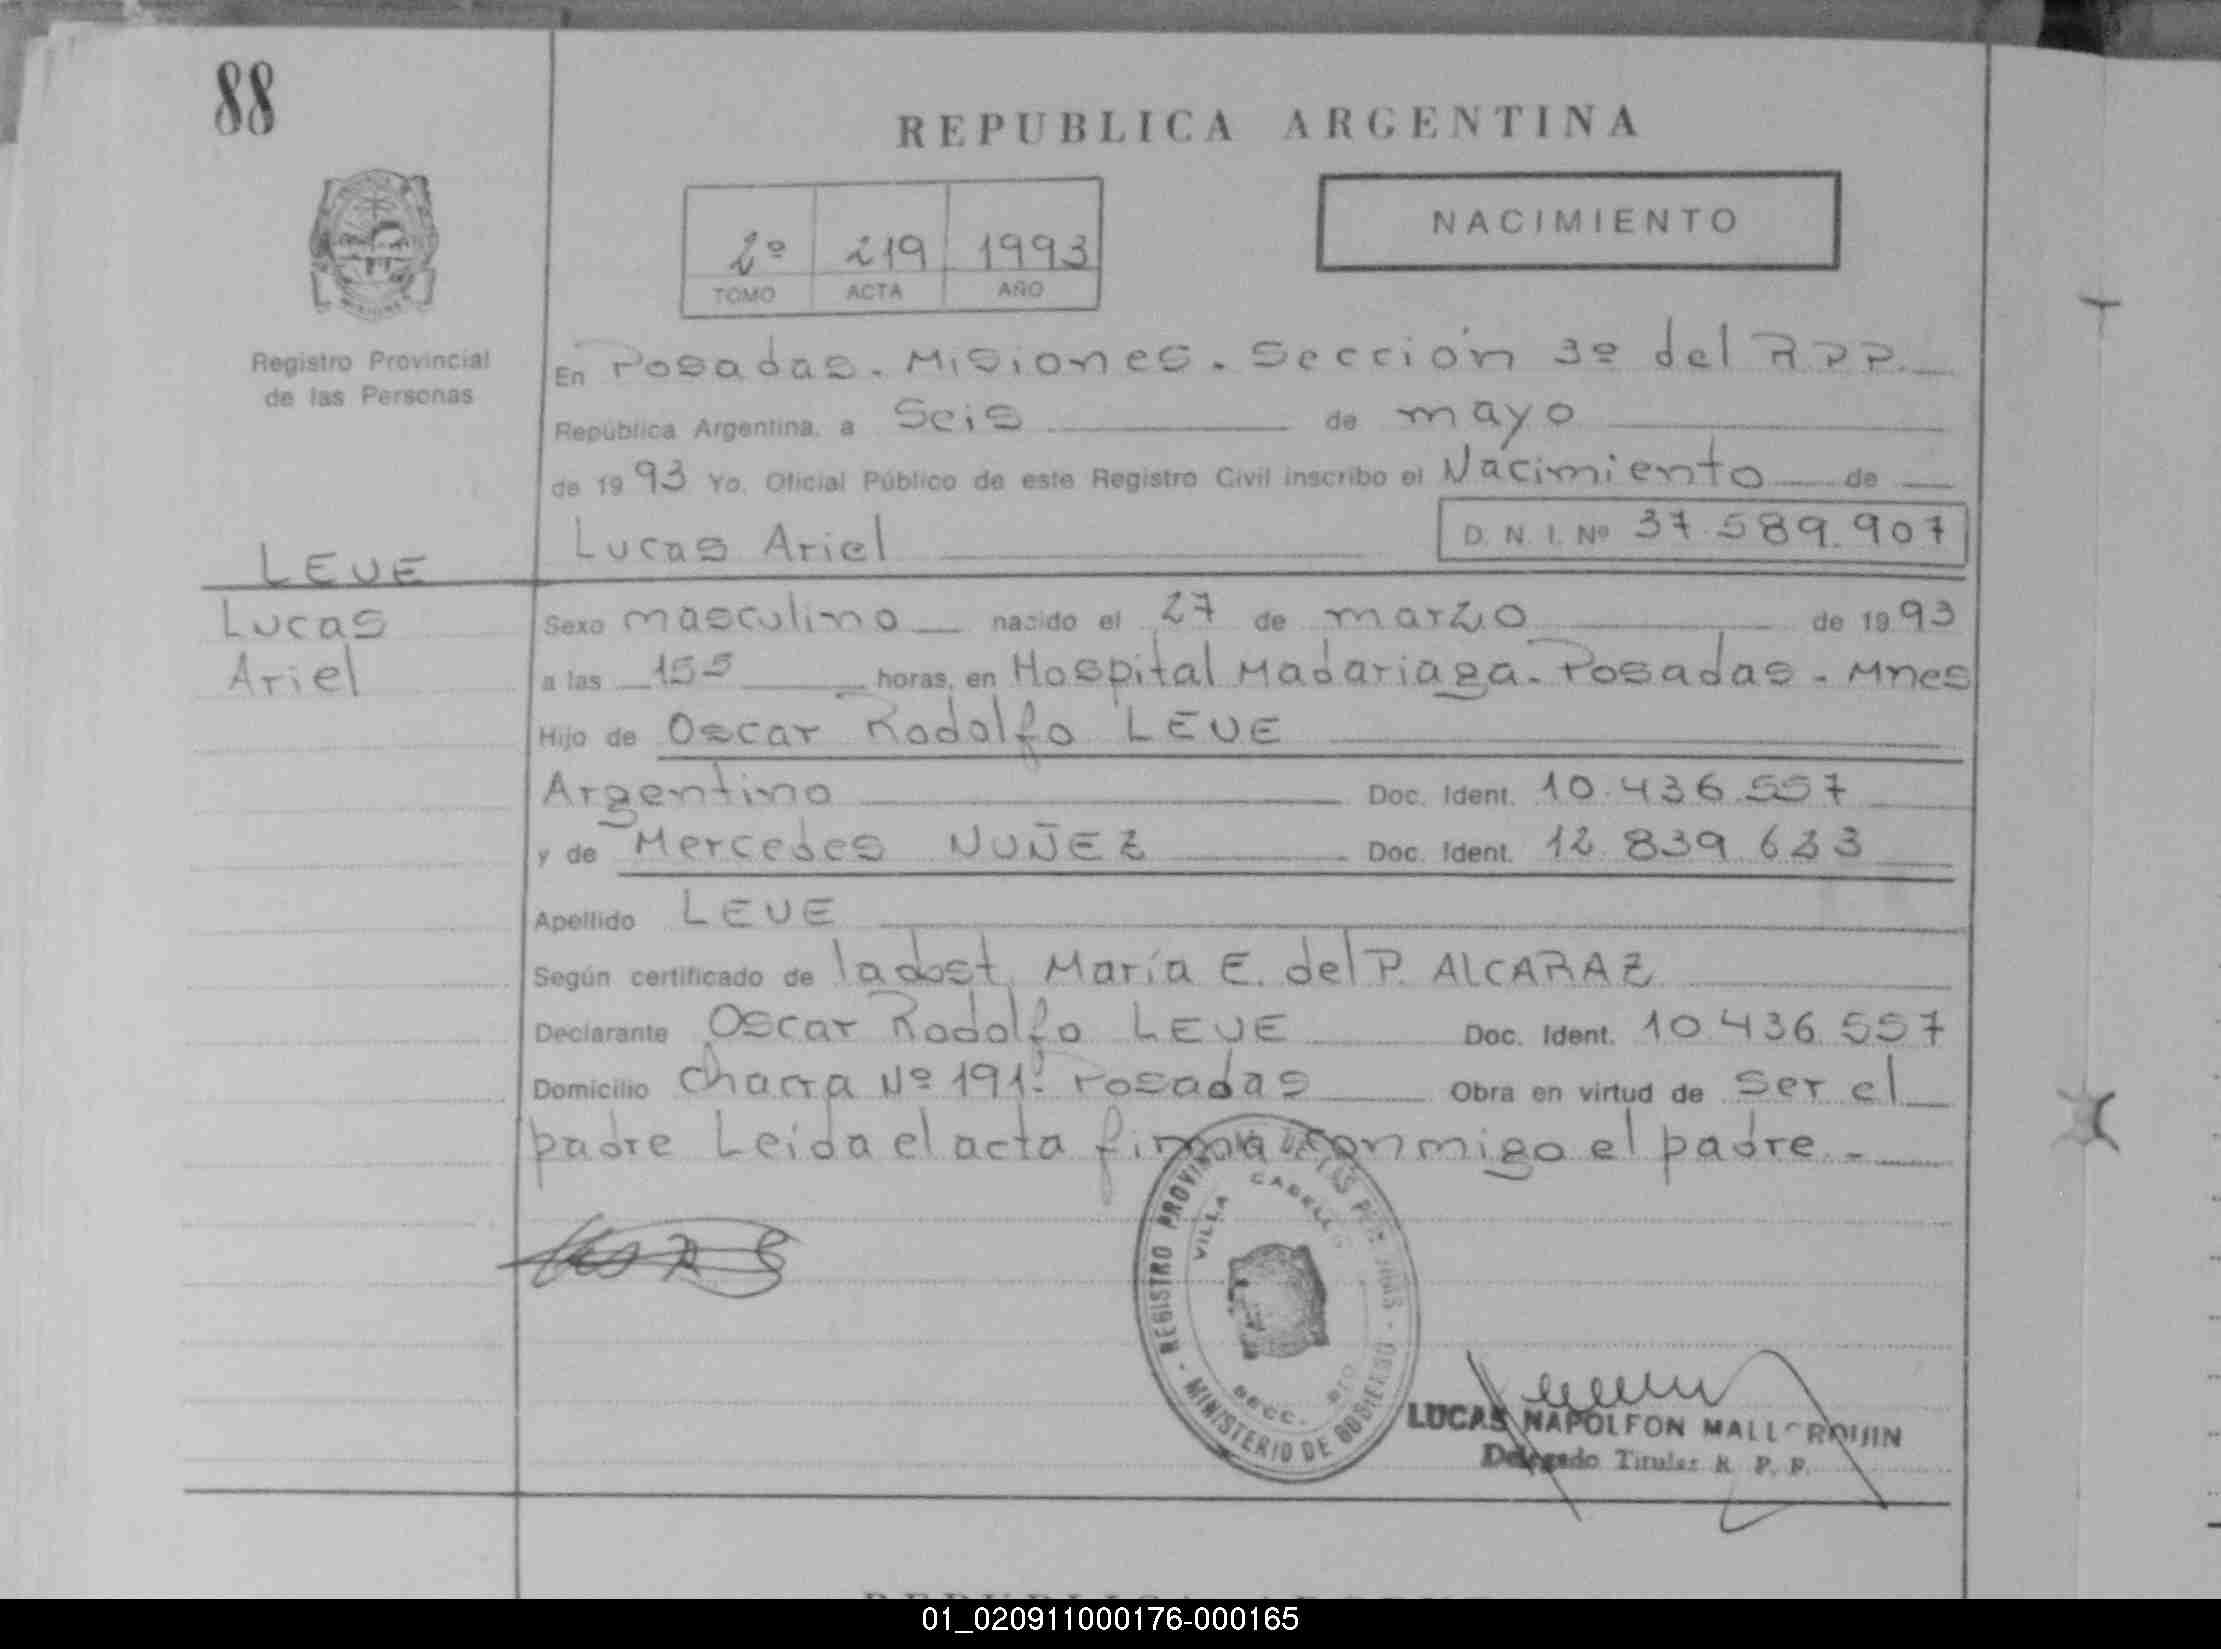 88
REPUBLICA ARGENTINA
2º 219 1993
TOMO ACTA AÑO
NACIMIENTO
Registro Provincial
de las Personas
En Posadas. Misiones. Sección 3º del R.P.P.
República Argentina, a Seis de mayo
de 1993 Yo, Oficial Público de este Registro Civil inscribo el Nacimiento de
Lucas Ariel D. N. I. Nº 37.589.907
LEUE
Lucas
Ariel
Sexo masculino nacido el 27 de marzo de 1993
a las 155 horas, en Hospital Madariaga. Posadas. Mnes
Hijo de Oscar Rodolfo LEUE
Argentino Doc. Ident. 10.436.557
y de Mercedes NUÑEZ Doc. Ident. 12.839.633
Apellido LEUE
Según certificado de la obst. María E. del P. ALCARAZ
Declarante Oscar Rodolfo LEUE Doc. Ident. 10.436.557
Domicilio Chacra Nº 191. Posadas Obra en virtud de ser el
padre Leida el acta firma conmigo el padre.-
REGISTRO PROVIN DE LAS PERSONAS - MINISTERIO DE GOBIERNO -
VILLA CABELLO
SECC. 3ro
LUCAS NAPOLEON MALL
Delegado Titular R. P. P.
01_020911000176-000165